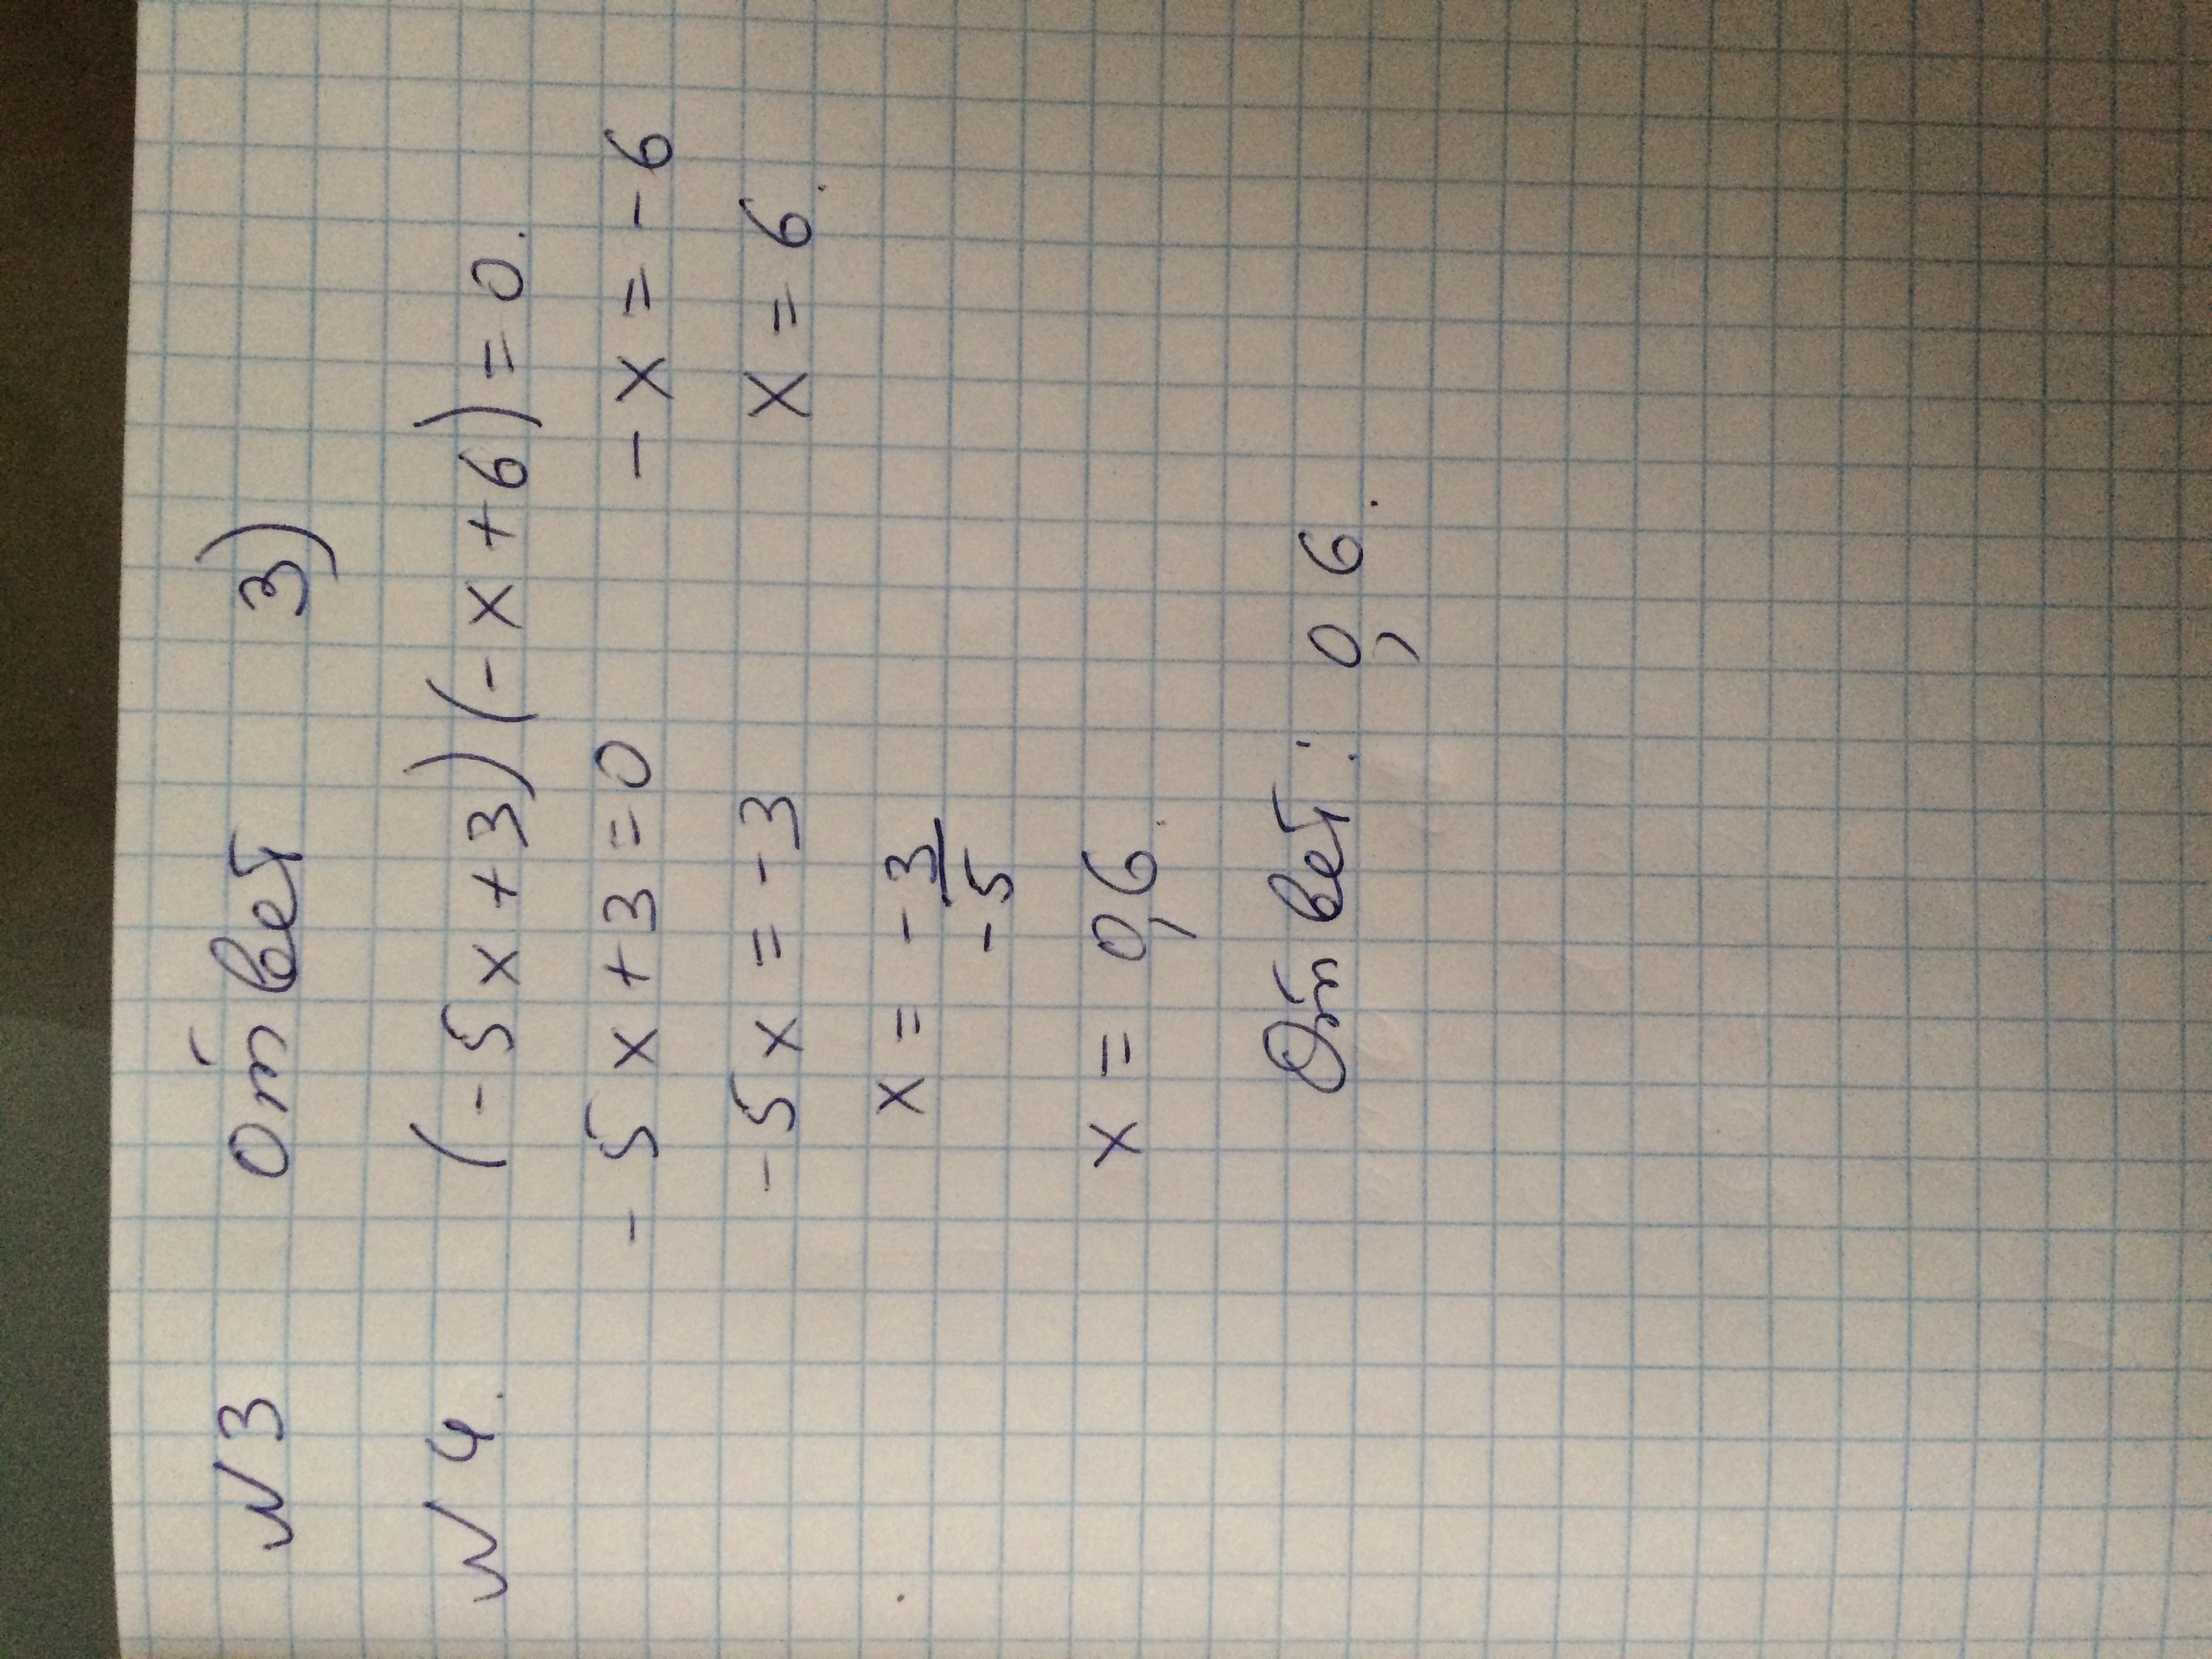 №3 Ответ 3)
№4. (-5x+3)(-x+6)=0.
-5x+3=0 -x=-6
-5x=-3 x=6.
x=-3/-5
x=0,6.
Ответ: 0,6.